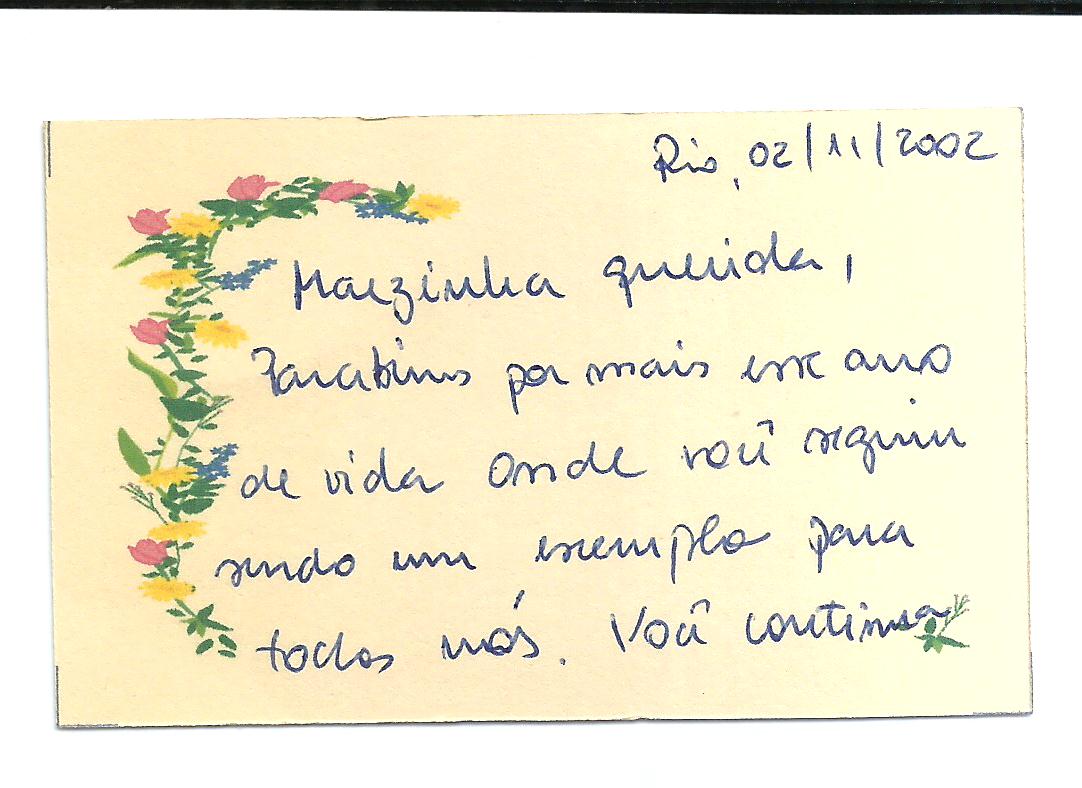 Rio, 02/11/2002
Maezinha querida,
Parabéns por mais esse ano
de vida onde você seguiu
sendo um exemplo para
todos nós. Você continua